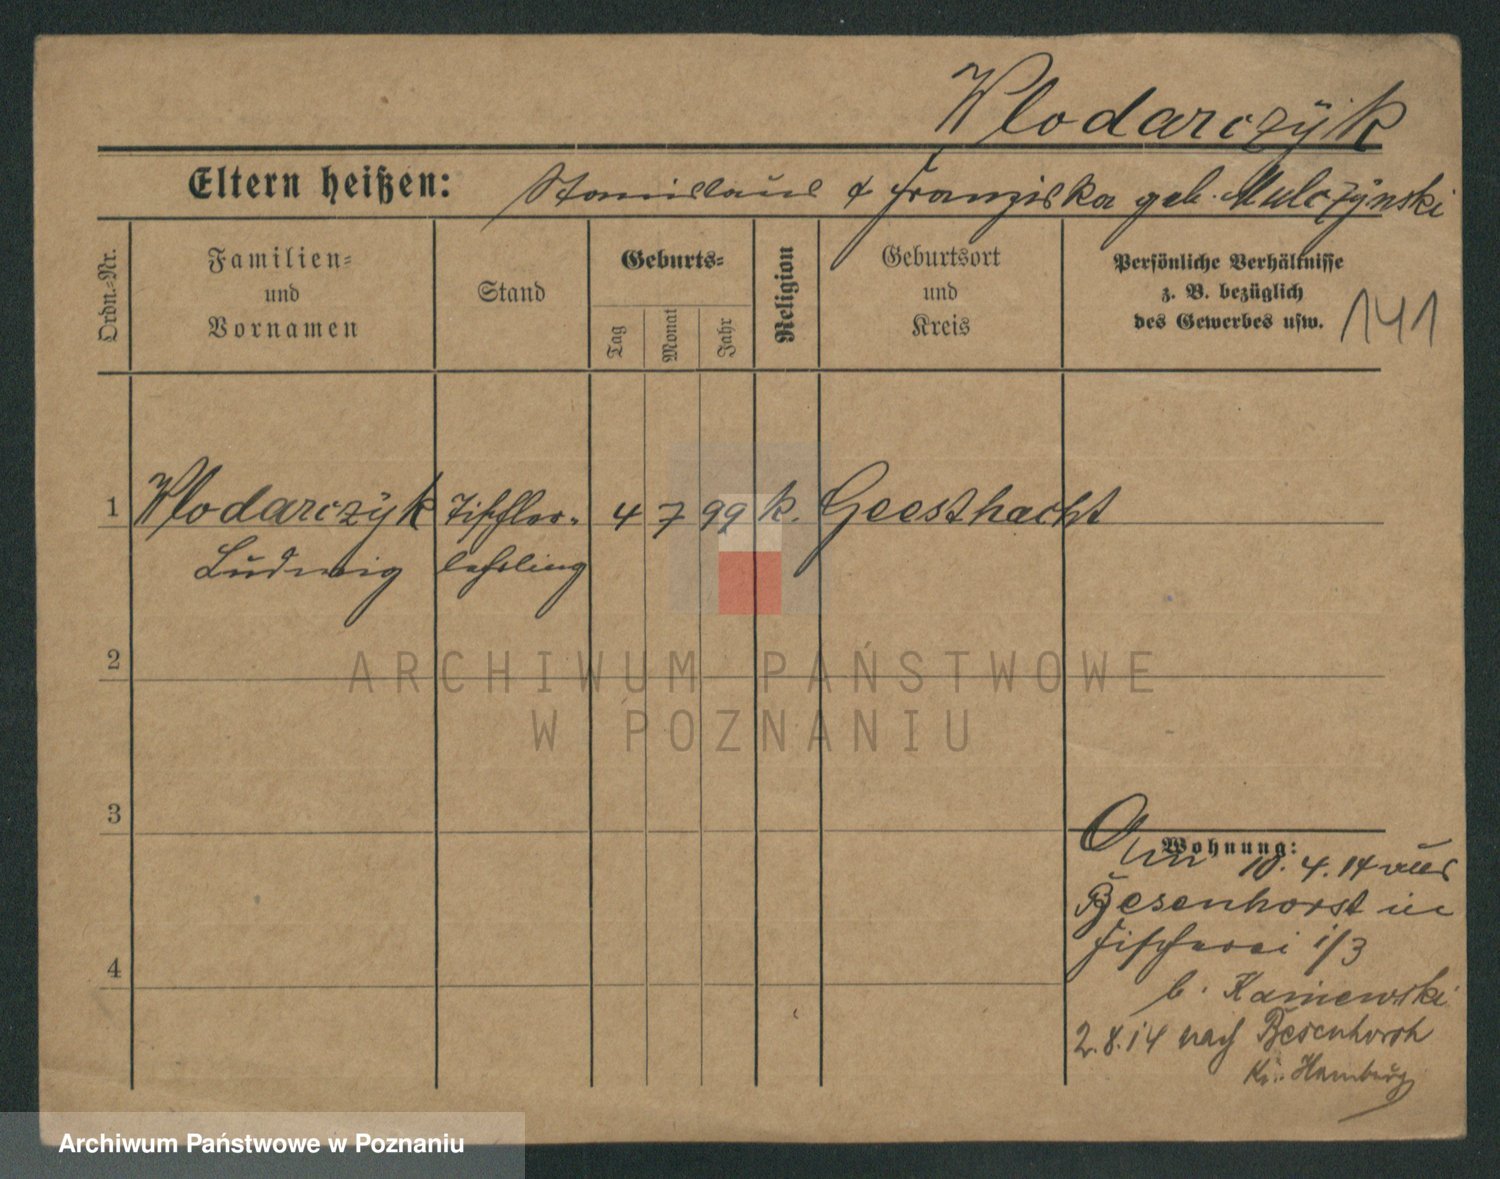 Wlodarczÿk
Eltern heißen: Stanislaus & Franziska geb. Mulczÿnski
Ordn.-Nr.
Familien-
und
Vornamen
Stand
Geburts-
Tag
Monat
Jahr
Religion
Geburtsort
und
Kreis
Persönliche Verhältnisse
z. B. bezüglich
des Gewerbes usw.
141
1 Wlodarczÿk Tischler- 4 7 99 k. Geesthacht
Ludwig lehrling
2
ARCHIWUM PAŃSTWOWE
W POZNANIU
3
Wohnung:
10. 4. 14 aus
Besenhorst in
Fischerei 1/3
b. Kaniewski
4
2. 8. 14 nach Besenhorst
Kr. Hamburg
Archiwum Państwowe w Poznaniu